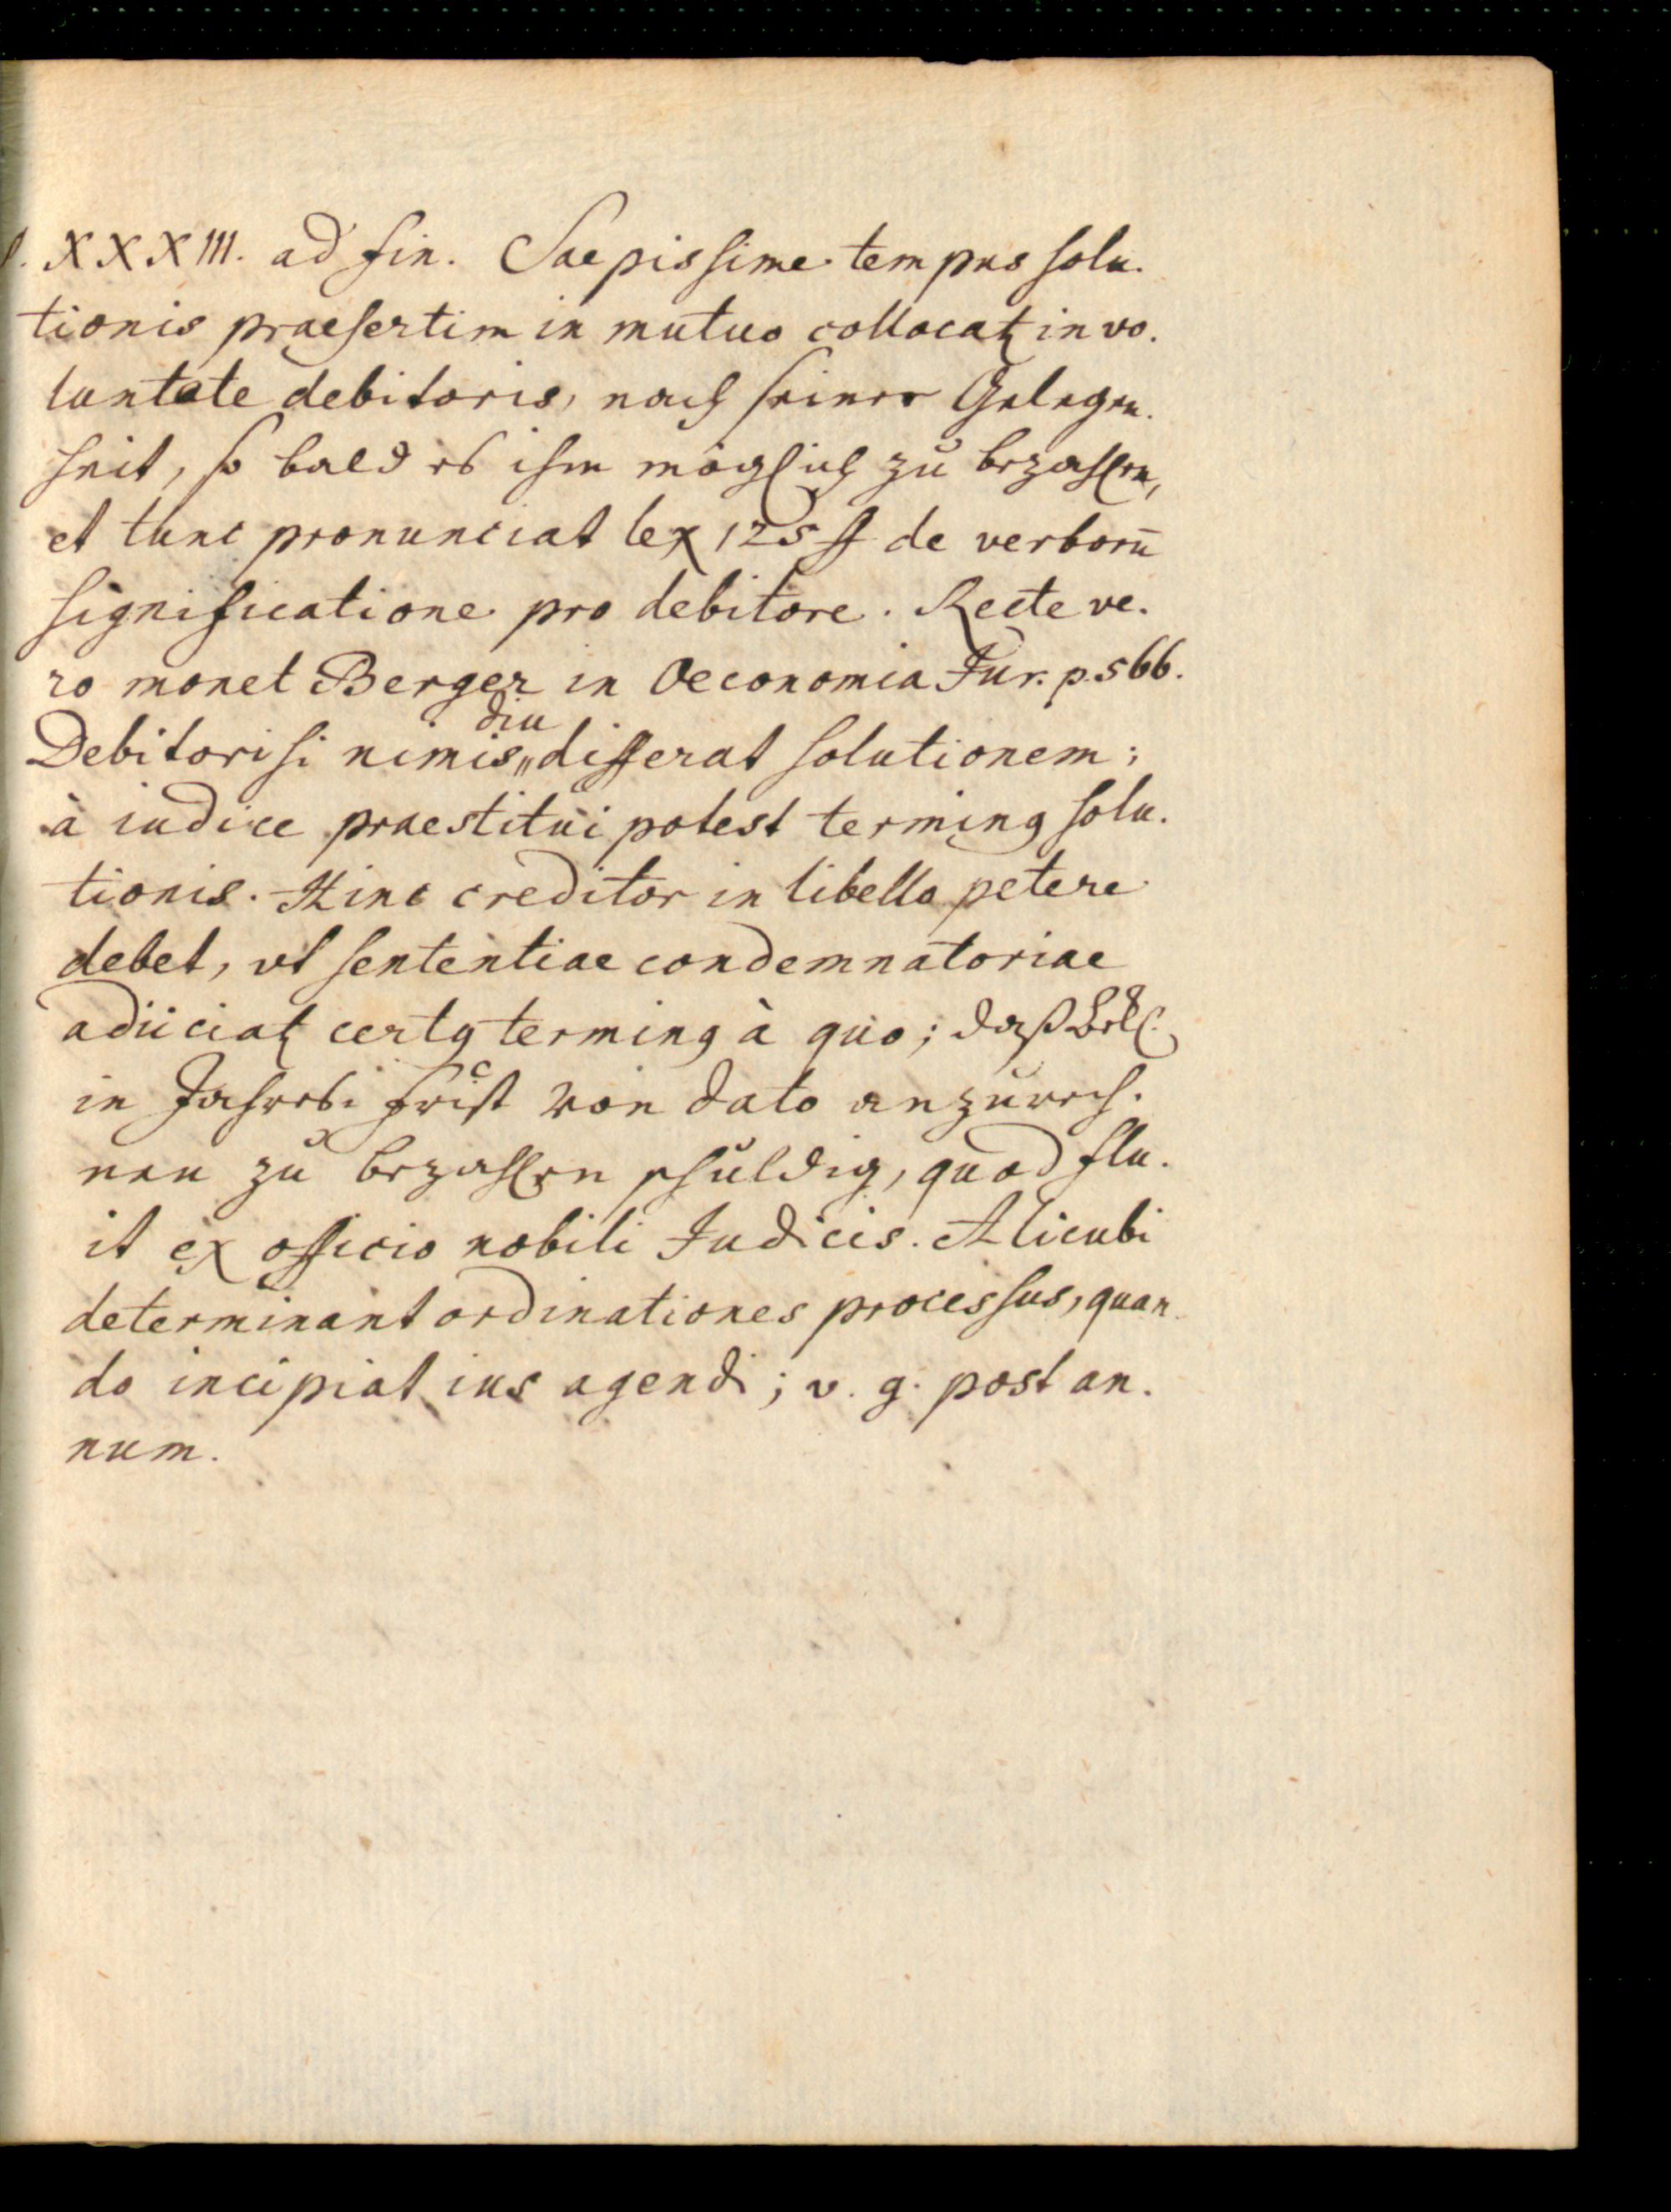 §. XXXIII. ad fin. Saepissime tempus solu-
tionis praesertim in mutuo collocatꝭ in vo-
luntate debitoris, nach seiner Gelegen-
heit, so bald es ihm möglich zu bezahlen,
et tunc pronunciat lex 125 ff de verborū
significatione pro debitore. Recte ve-
ro monet Berger in Oeconomia Jur. p. 566.
Debitori si nimis diu differat solutionem;
à iudice praestitui potest terminꝯ solu-
tionis. Hinc creditor in libello petere
debet, ut sententiae condemnatoriae
adiiciatꝭ certꝯ terminꝯ à quo; daß Bekl.
in Jahres-frist von dato anzurech-
nen zu bezahlen schuldig, quod flu-
it ex officio nobili Judicis. Alicubi
determinant ordinationes processus, quan-
do incipiat ius agendi; v. g. post an-
num.